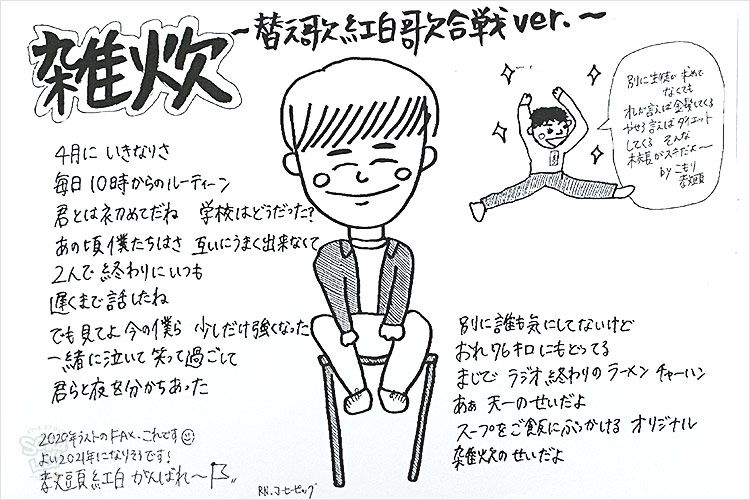 雑炊
~替え歌紅白歌合戦ver.~
4月に いきなりさ
毎日10時からのルーティーン
君とは初めてだね 学校はどうだった?
あの頃僕たちはさ 互いにうまく出来なくて
2人で終わりにいつも
遅くまで話したね
でも見てよ今の僕ら 少しだけ強くなった
一緒に泣いて笑って過ごして
君らと夜を分かちあった
2020年ラストのFAX、これです
よい2021年になりそうです!
教頭紅白がんばれ~
別に生徒が求めて
なくても
オレが言えば金髪にしてくる
やせろ言えばダイエット
してくる そんな
校長がスキだよ~
by こもり
教頭
別に誰も気にしてないけど
おれ76キロにもどってる
まじで ラジオ終わりのラーメン チャーハン
あぁ 天一のせいだよ
スープをご飯にぶっかける オリジナル
雑炊のせいだよ
RN.コセービッグ